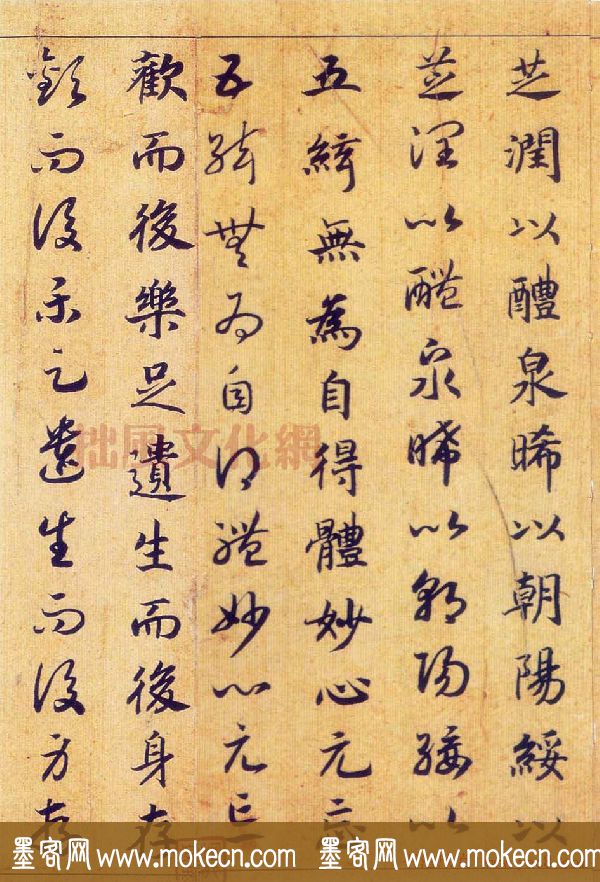 芝潤以醴泉晞以朝陽綏以
芝潤以醴泉晞以朝陽綏以
五絃無為自得體妙心元忘
五絃無為自得體妙心元忘
歡而後樂足遺生而後身存
歡而後樂足遺生而後身存
拙風文化網
墨客网 www.mokecn.com 墨客网 www.mokecn.com